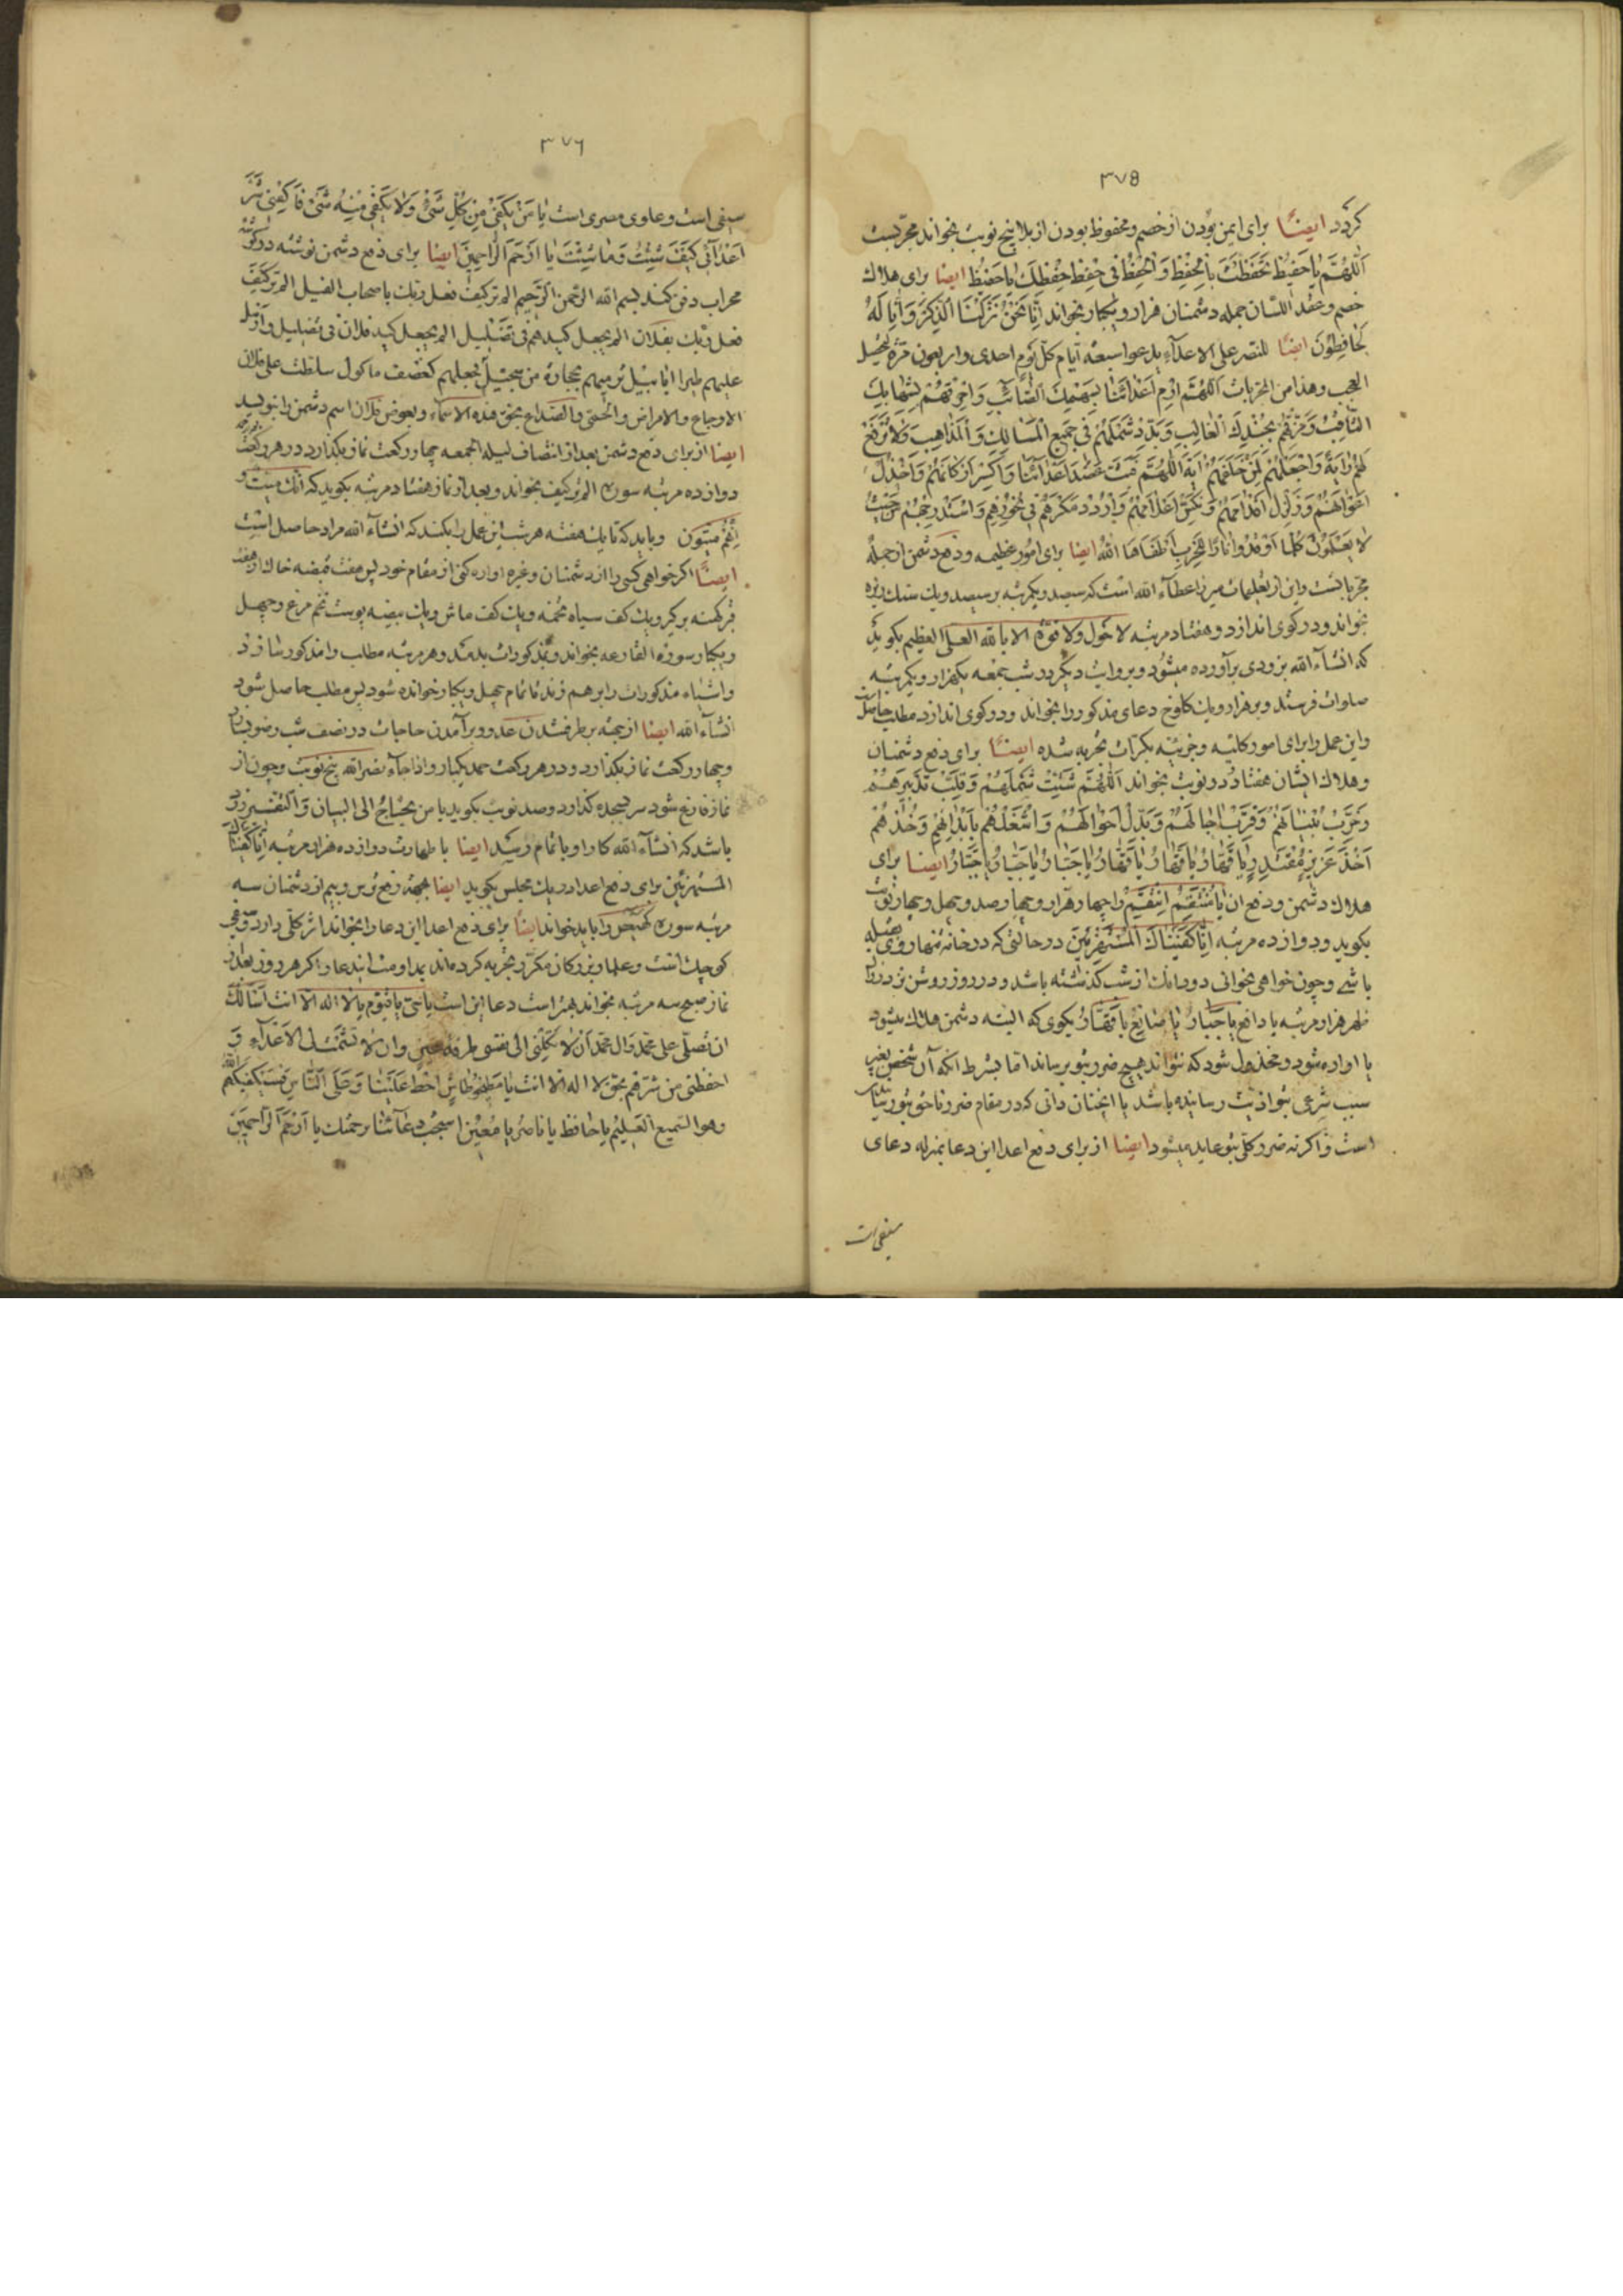 ٣٧٥
كردد ايضًا براى ايمن بودن از خصم و محفوظ بودن از بلا پنج نوبت بخواند مجرّبست
اَللّهُمَّ يا حَفيظُ تَحَفَّظْتَ بِالْحِفْظِ وَالْحِفْظُ فى حِفْظِ حِفْظِكَ يا حَفيظُ ايضا براى هلاك
خصم و عقد اللسان جمله دشمنان هزار و يكبار بخواند اِنّا نَحْنُ نَزَّلْنَا الذِّكْرَ وَاِنّا لَهُ
لَحافِظُونَ ايضًا للنصر على الاعدآء يدعوا سبعة ايام كلّ يوم احدى واربعون مرّة يحصل
العجب وهذا من المجربات اَللّهُمَّ ارْمِ اَعْدائَنا بِسَهْمِكَ الصّائِبِ وَاحْرِقْهُمْ بِشِهابِكَ
الثّاقِبِ وَمَزِّقْهُمْ بِجُنْدِكَ الْغالِبِ وَبَدِّدْ شَمْلَهُمْ فى جَميعِ الْمَسالِكِ وَالْمَذاهِبِ وَلا تَرْفَعْ
لَهُمْ رايَةً وَاجْعَلْهُمْ لِمَنْ خَلْفَهُمْ ايَةً اَللّهُمَّ فُتَّ عَضُدَ اَعْدائِنا وَاكْسِرْ اَرْكانَهُمْ وَاخْذُلْ
اَعْوانَهُمْ وَزَلْزِلْ اَقْدامَهُمْ وَنَكِّسْ اَعْلامَهُمْ وَارْدُدْ مَكْرَهُمْ فى نُحُورِهِمْ وَاسْتَدْرِجْهُمْ مِنْ حَيْثُ
لا يَعْلَمُونَ كُلَّما اَوْقَدُوا نارًا لِلْحَرْبِ اَطْفَاَهَا اللّهُ ايضا براى امور عظيمه و دفع دشمن از جمله
مجرباتست و اين از تعليمات ميرزا عطآء الله است كه سيصد و يكمرتبه بر سيصد و يك سنك ريزه
بخواند و در كوى اندازد و هفتاد مرتبه لا حول ولا قوّة الا بالله العلىّ العظيم بكويد
كه انشآء الله بزودى برآورده ميشود و بروايت ديكر در شب جمعه يكهزار و يكمرتبه
صلوات فرستد و بر هزار و يك كلوخ دعاى مذكور را بخواند و در كوى اندازد مطلب حاصل است
و اين عمل را براى امور كليّه و جزئيّه بكرّات تجربه شده ايضًا براى دفع دشمنان
و هلاك ايشان هفتاد و دو نوبت بخواند اَللّهُمَّ شَتِّتْ شَمْلَهُمْ وَقَلِّبْ تَدْبيرَهُمْ
وَخَرِّبْ بُنْيانَهُمْ وَقَرِّبْ اجالَهُمْ وَبَدِّلْ اَحْوالَهُمْ وَاشْغَلْهُمْ بِاَبْدانِهِمْ وَخُذْهُمْ
اَخْذَ عَزيزٍ مُقْتَدِرٍ يا قَهّارُ يا قَهّارُ يا قَهّارُ يا جَبّارُ يا جَبّارُ يا جَبّارُ ايضا براى
هلاك دشمن و دفع ان يا مُنْتَقِمُ اِنْتَقِمْ را چهار هزار و چهار صد و چهل و چهار نوبت
بكويد و دوازده مرتبه اِنّا كَفَيْناكَ الْمُسْتَهْزِئينَ در حالتى كه در خانه تنها رو بقبله
باشى و چون خواهى بخوانى دو دانك از شب كذشته باشد و در روز روشن نزد زوال
ظهر هزار مرتبه يا دافع يا جَبّارُ يا صانِعُ يا قَهّارُ بكوى كه البته دشمن هلاك ميشود
يا اواره شود و مخذول شود كه نتواند هيچ ضرر بتو برساند اما بشرط انكه آن شخص بغير
سبب شرعى بتو اذيت رسانيده باشد يا انچنان دانى كه در مقام ضرر ناحق بتو رسانيدن
است و اكرنه ضرر كلّى بتو عايد ميشود ايضا از براى دفع اعدا اين دعا بمنزله دعاى
سيفى است
٣٧٦
سيفى است و علوى مصرى است يا مَنْ يَكْفى مِنْ كُلِّ شَىْءٍ وَلا يَكْفى مِنْهُ شَىْءٌ فَاكْفِنى شَرَّ
اَعْدآئى كَيْفَ شِئْتَ وَما شِئْتَ يا اَرْحَمَ الرّاحِمينَ ايضا براى دفع دشمن نوشته در كوشه
محراب دفن كند بسم الله الرّحمن الرّحيم الم تر كيف فعل ربّك باصحاب الفيل الم تر كيف
فعل ربّك بفلان الم يجعل كيدهم فى تضليل الم يجعل كيد فلان فى تضليل وارسل
عليهم طيرا ابابيل ترميهم بحجارة من سجّيل فجعلهم كعصف ماكول سلطت على فلان
الاوجاع والامراض والحمى والصداع بحقّ هذه الاسمآء و بعوض فلان اسم دشمن را بنويسد
ايضا از براى دفع دشمن بعد از انتصاف ليلة الجمعه چهار ركعت نماز بكذارد در هر ركعت
دوازده مرتبه سوره الم تر كيف بخواند و بعد از نماز هفتاد مرتبه بكويد كه انّك ميّت و
انّهم ميّتون و بايد كه تا يك هفته هر شب اين عمل را بكند كه انشآء الله مراد حاصل است
ايضًا اكر خواهى كسى را از دشمنان و غيره اواره كنى از مقام خود پس هفت قبضه خاك از هفت
قبر كهنه بركير و يك كف سياه تخمه و يك كف ماش و يك بيضه پوست تخم مرغ و چهل
و يكبار سوره القارعه بخواند و بمذكورات بدمد و هر مرتبه مطلب را مذكور سازد
و اشياء مذكورات را برهم زند تا تمام چهل و يكبار خوانده شود پس مطلب حاصل شود
انشآء الله ايضا از جهة برطرف شدن عدو و برآمدن حاجات در نصف شب وضو بسازد
و چهار ركعت نماز بكذارد و در هر ركعت حمد يكبار و اذا جآء نصر الله پنج نوبت و چون از
نماز فارغ شود سر بسجده كذارد و صد نوبت بكويد يا من يحتاج الى البيان والتفسير زود
باشد كه انشآء الله كار او باتمام رسد ايضا با طهارت دوازده هزار مرتبه اِنّا كَفَيْناكَ
المُسْتَهْزِئينَ براى دفع اعدا در يك مجلس بكويد ايضا بجهة دفع ترس و بيم از دشمنان سه
مرتبه سوره كهيعص را بايد خواند ايضًا براى دفع اعدا اين دعا را بخواند اثر كلى دارد و سيفى
كوچك است و علما و بزركان مكرّر تجربه كرده‌اند مداومت ايندعا را كر هر روز بعد از
نماز صبح سه مرتبه بخواند بهتر است دعا اين است يا حىّ يا قيّوم يا لا اله الا انت اسالك
ان تصلّى على محمّد وال محمّد ان لا تكلنى الى نفسى طرفة عين وان لا تشمت بى الاعدآء و
احفظنى من شرّهم بحق لا اله الا انت اِحْط عَلَيْنا وَعَلَى النّاسِ فَسَيَكْفيكَهُمُ اللّه
وهو السّميع العَليمُ يا حافظ يا ناصر يا مُعينُ استجب دعآئنا برحمتك يا اَرْحَمَ الرّاحِمينَ